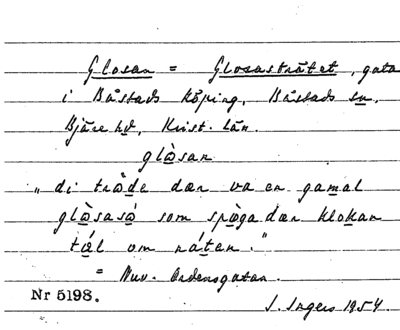 Glosan = Glosasträtet, gata
i Båstads köping, Båstads sn,
Bjäre hd, Krist. län.
glòsan
"di trǻde dær va en gamal
glòsaså som spøga dær klokan
tål om náten."
= Nuv. Ordensgatan.
Nr 5198.
J. Ingers 1954.